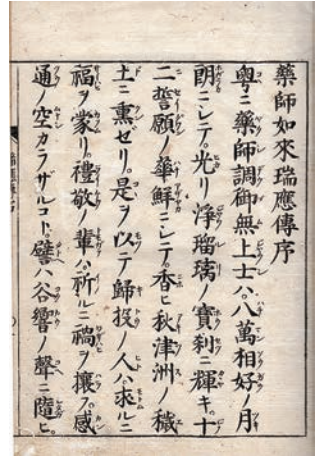 藥師如來瑞應傳序
粤ニ藥師調御無上士ハ。八萬相好ノ月
朗ニシテ。光リ淨瑠璃ノ寶刹ニ輝キ。十
二誓願ノ華鮮ニシテ。香ヒ秋津洲ノ穢
土ニ熏ゼリ。是ヲ以テ歸投ノ人ハ。求ルニ
福ヲ蒙リ。禮敬ノ輩ハ。祈ルニ禍ヲ攘フ。感
通ノ空カラザルコト。譬ハ谷響ノ聲ニ隨ヒ。